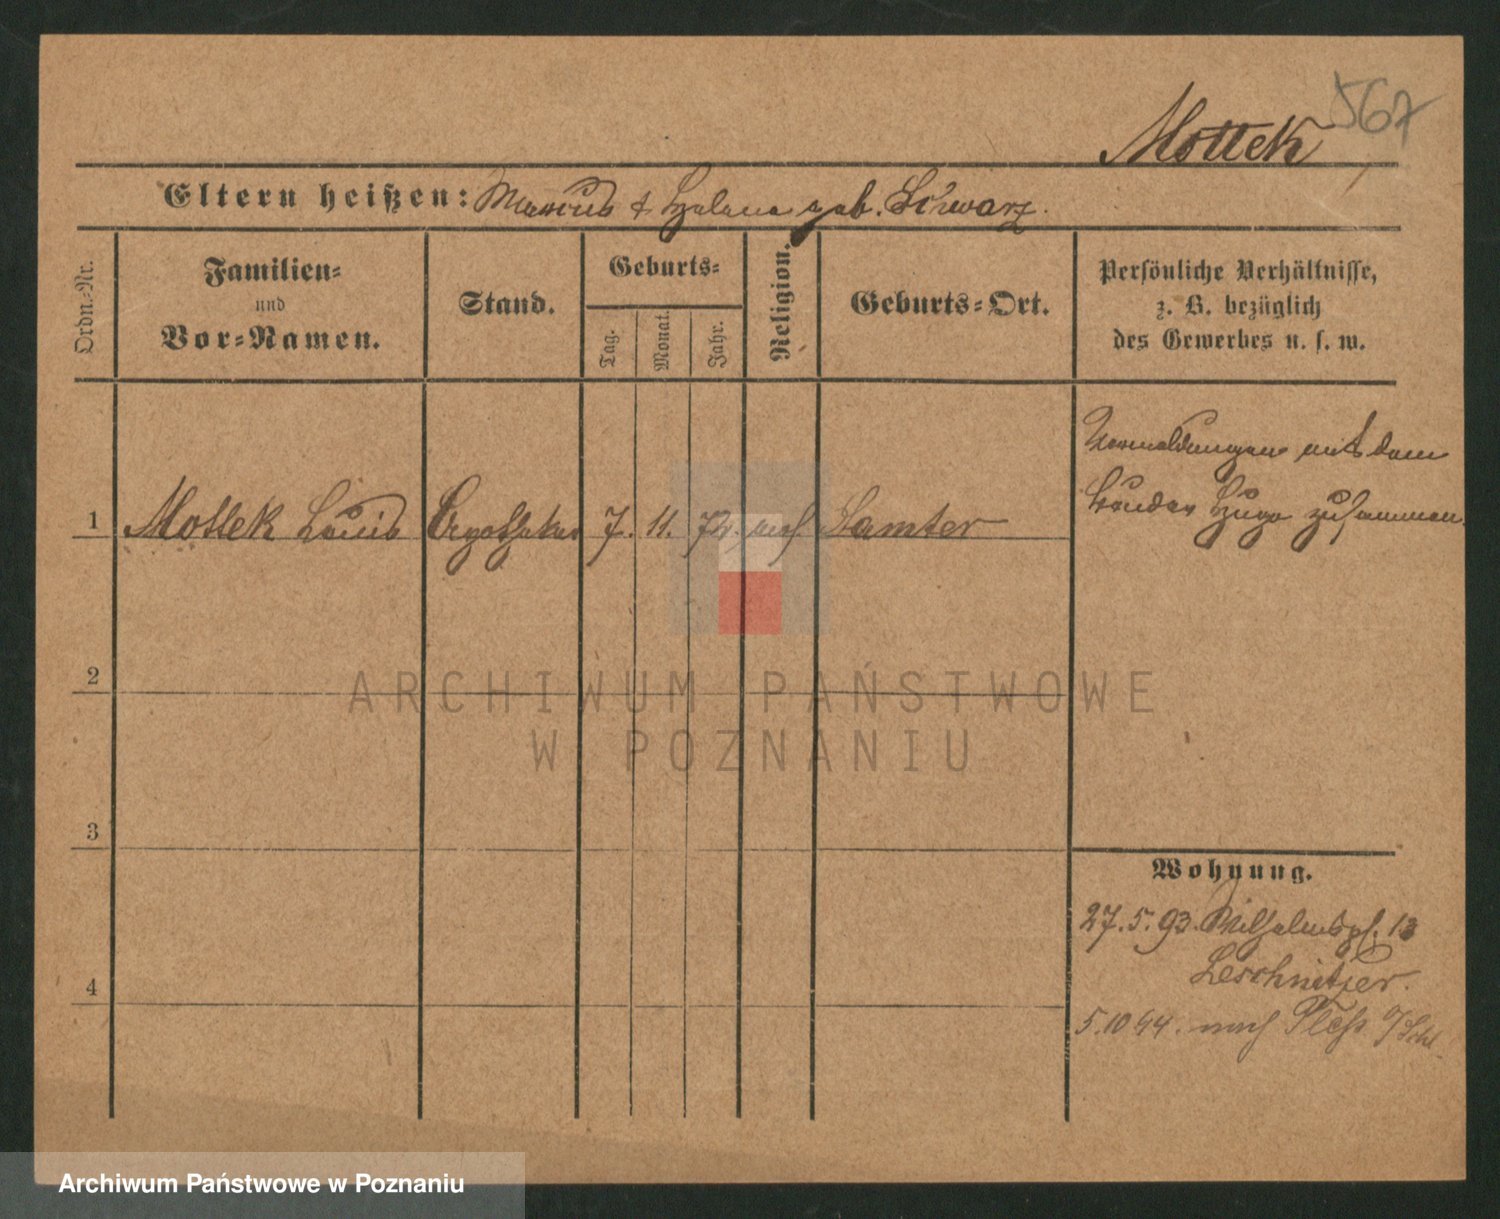 567
Mottek
Eltern heißen: Marcus & Helene geb. Schwarz.
Ordn.-Nr.
Familien-
und
Vor-Namen.
Stand.
Geburts-
Tag.
Monat.
Jahr.
Religion.
Geburts-Ort.
Persönliche Verhältnisse,
z. B. bezüglich
des Gewerbes u. s. w.
1 Mottek Louis Apotheker 7. 11. 74. mos. Samter
Vermeldungen mit dem
Bruder Hugo zusammen.
2
3
4
Wohnung.
27.5.93. Wilhelmspl. 13
Leschnitzer.
5.10 94. nach Pleß O/Schl.
ARCHIWUM PAŃSTWOWE
W POZNANIU
Archiwum Państwowe w Poznaniu